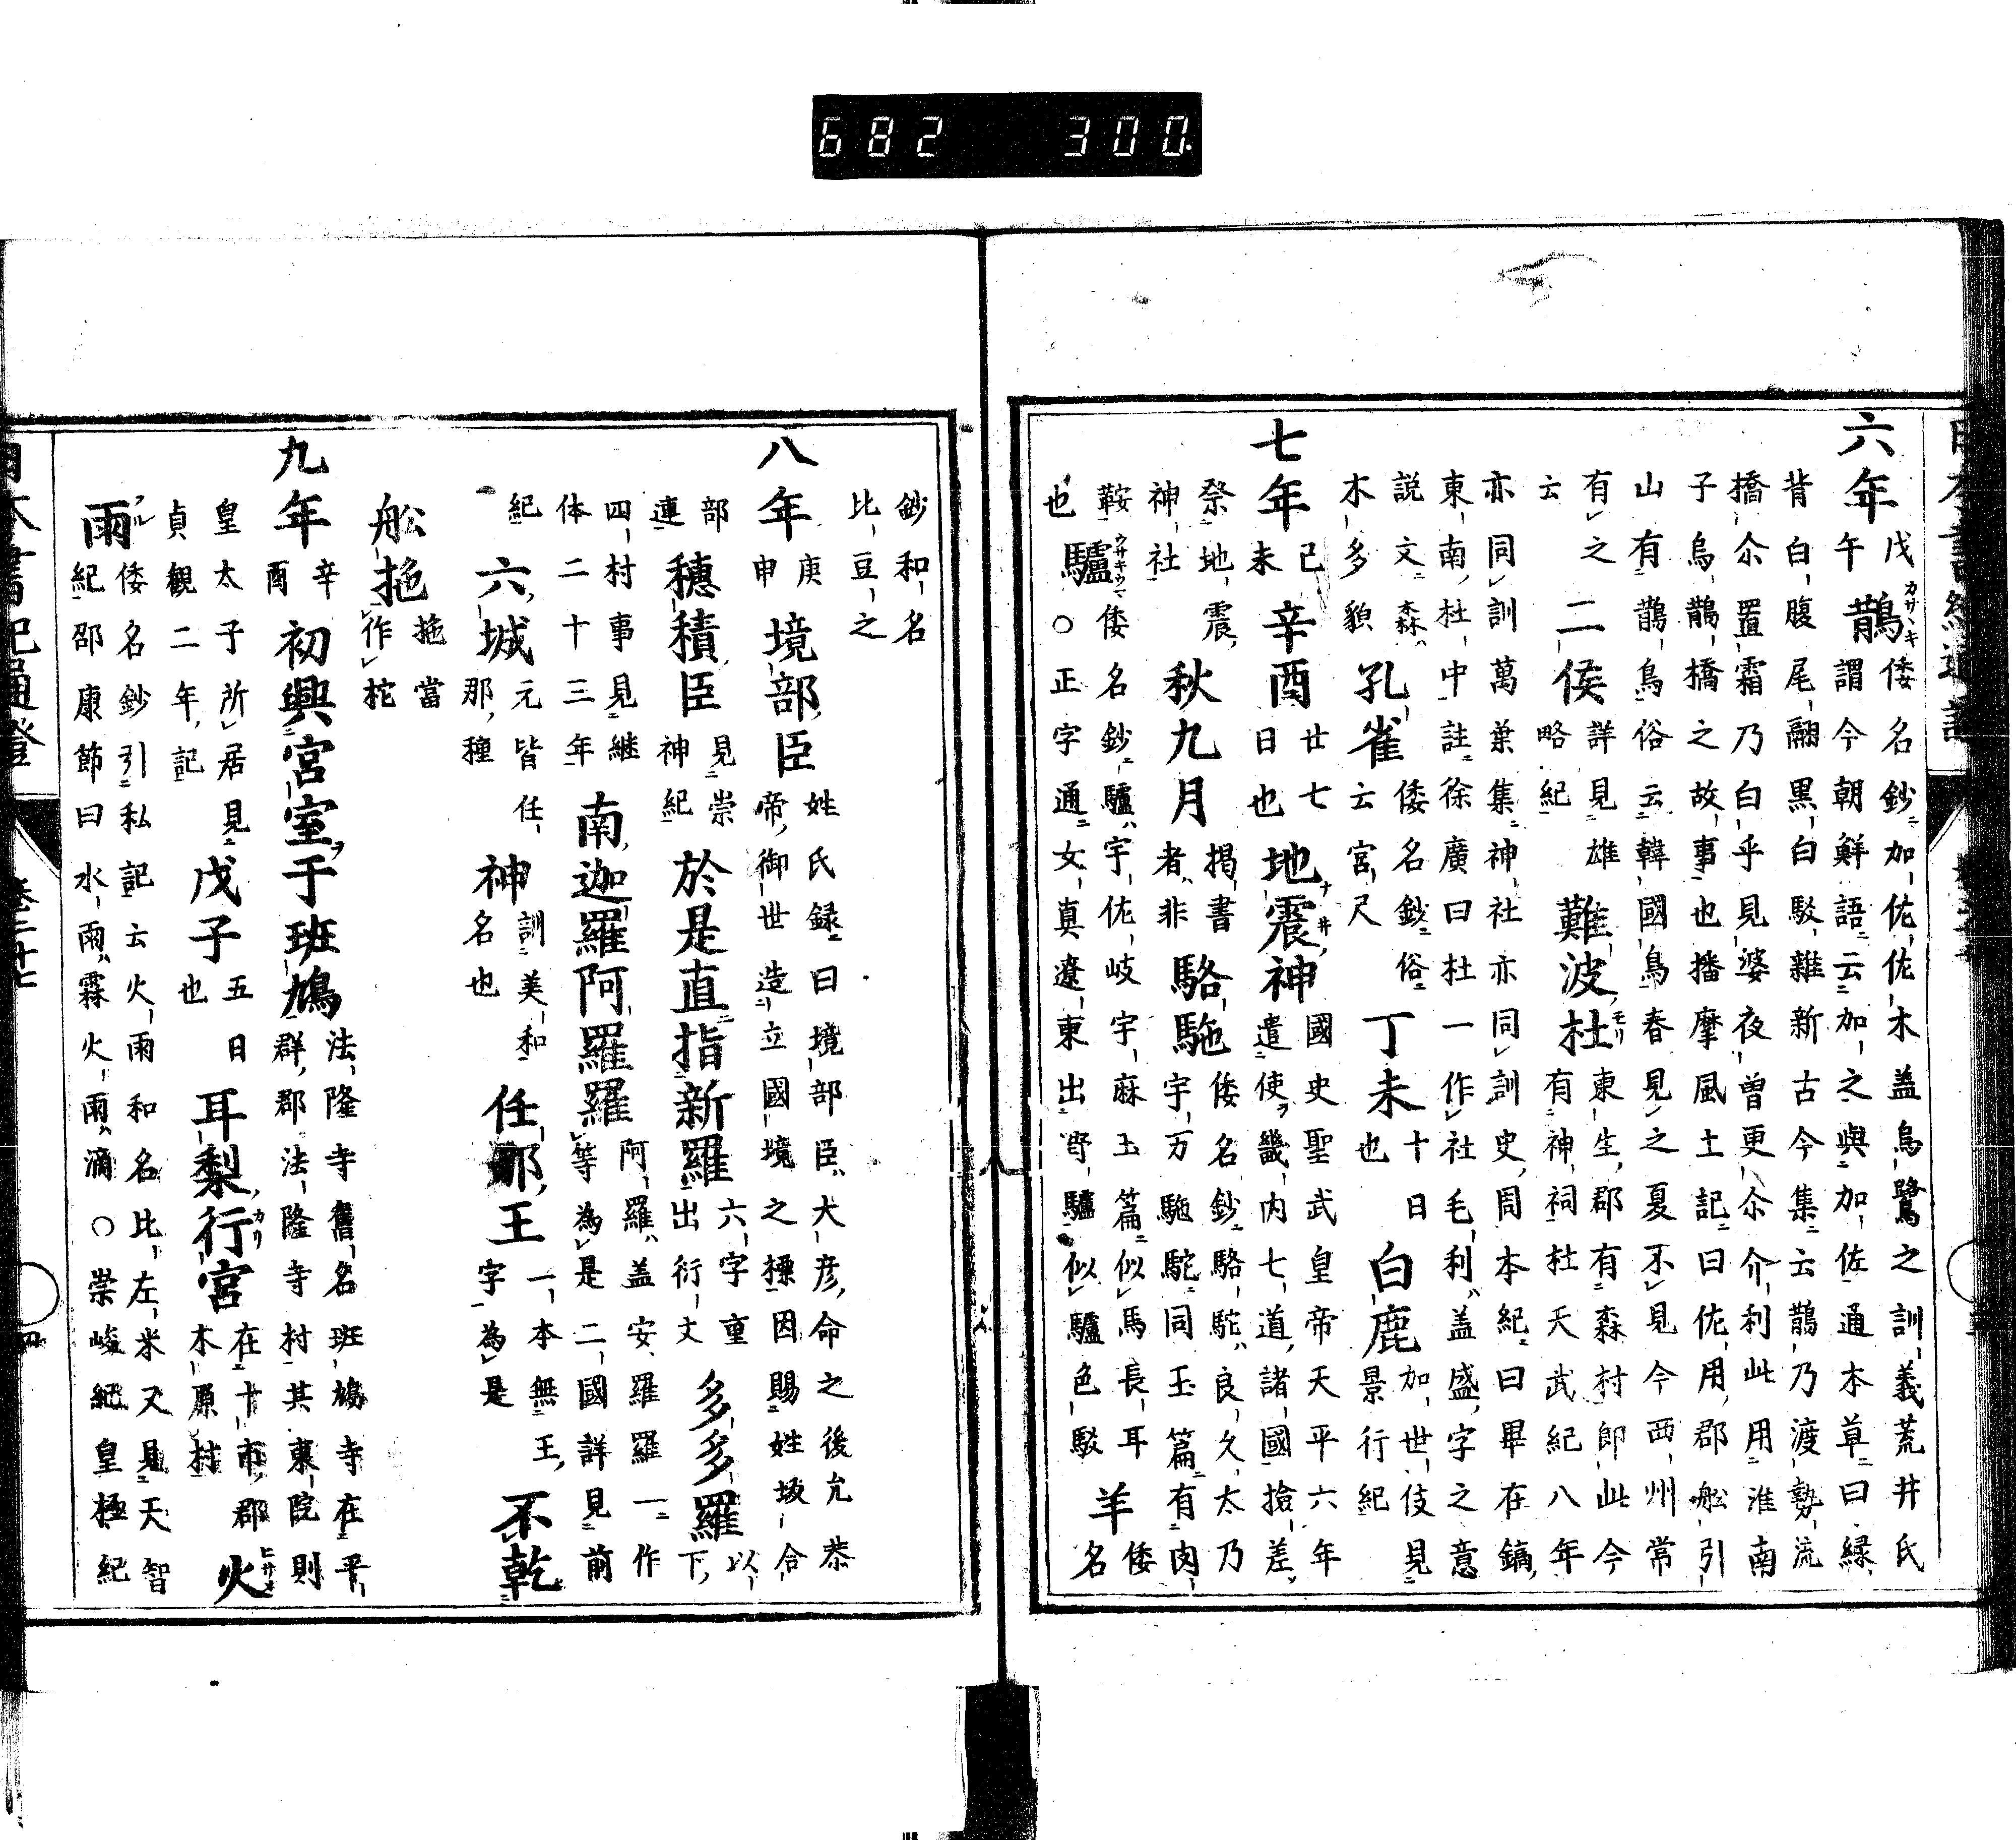 六年 戊午 鵲 倭名鈔加佐佐木盖烏鷺之訓義荒井氏
謂今朝鮮語云加之與加佐通本草曰緑
背白腹尾翮黒白駁雜新古今集云鵲乃渡勢流
橋尒置霜乃白乎見婆夜曽更尒介利此用淮南
子烏鵲橋之故事也播摩風土記曰佐用郡舩引
山有鵲鳥俗云韓國鳥春見之夏不見今西州常
有之云 二侯 詳見雄略紀 難波杜 東生郡有森村即此今有神祠杜天武紀八年
亦同訓萬葉集神社亦同訓史周本紀曰畢在鎬
東南杜中註徐廣曰杜一作社毛利盖盛字之意
説文森木多貌 孔雀 倭名鈔俗云宮尺 丁未 十日也 白鹿 加世伎見景行紀
七年 己未 辛酉 廿七日也 地震神 國史聖武皇帝天平六年遣使畿内七道諸國撿差
祭地震神社 秋九月 掲書者非 駱駞 倭名鈔駱駝良久太乃宇万駞駝同玉篇有肉
鞍也 驢 倭名鈔驢宇佐岐宇麻玉篇似馬長耳○正字通女真遼東出野驢似驢色駁 羊 倭名
鈔和名比豆之
八年 庚申 境部臣 姓氏録曰境部臣大彦命之後允恭帝御世造立國境之標因賜姓坂合
部連 穗積臣 見崇神紀 於是直指新羅 六字重出衍文 多多羅 以下
四村事見継体二十三年 南迦羅阿羅羅 阿羅盖安羅羅一作等為是二國詳見前
紀 六城 元皆任那種 神 訓美和名也 任那王 一本無王字為是 不乾
舩拖 拖當作柁
九年 辛酉 初興宮室于班鳩 法隆寺舊名班鳩寺在平群郡法隆寺村其東院則
皇太子所居見貞觀二年記 戊子 五日也 耳梨行宮 在十市郡木原村 火
雨 倭名鈔引私記云火雨和名比左米又見天智紀邵康節曰水雨霖火雨滴○崇峻紀皇極紀
日本書紀通證
四
682 300.